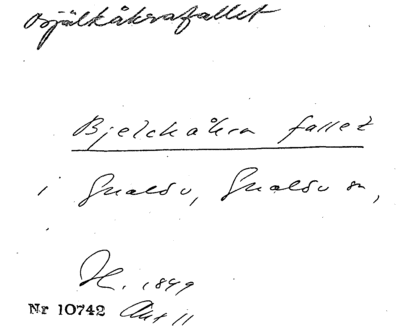 Bjälkåkrafallet
Bjelckåkra fallet
i Gualöv, Gualöv sn,
H. 1849
Nr 10742 Akt 11